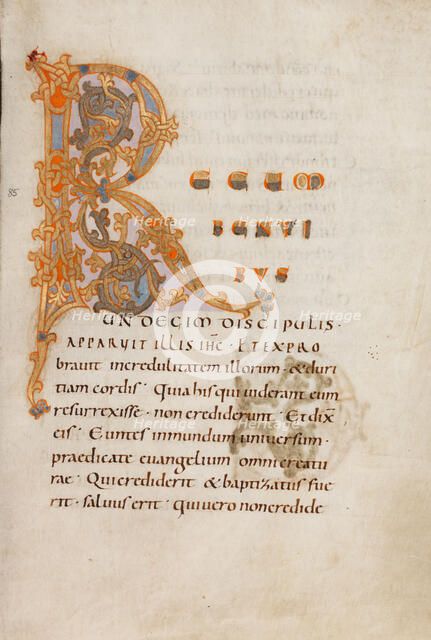 85
R ECUM
BENTI
BUS
UNDECIM DISCIPULIS·
APPARUIT ILLIS IHC· ET EXPRO
brauit incredulitatem illorum· & duri
tiam cordis· Quia his qui uiderant eum
resurrexisse· non crediderunt· Et dix̄
eis· Euntes in mundum uniuersum·
praedicate euangelium omni creatu
rae· Qui crediderit & baptizatus fue
rit· saluus erit· qui uero non credide
Heritage
Heritage
Heritage
Heritage
Heritage
Heritage